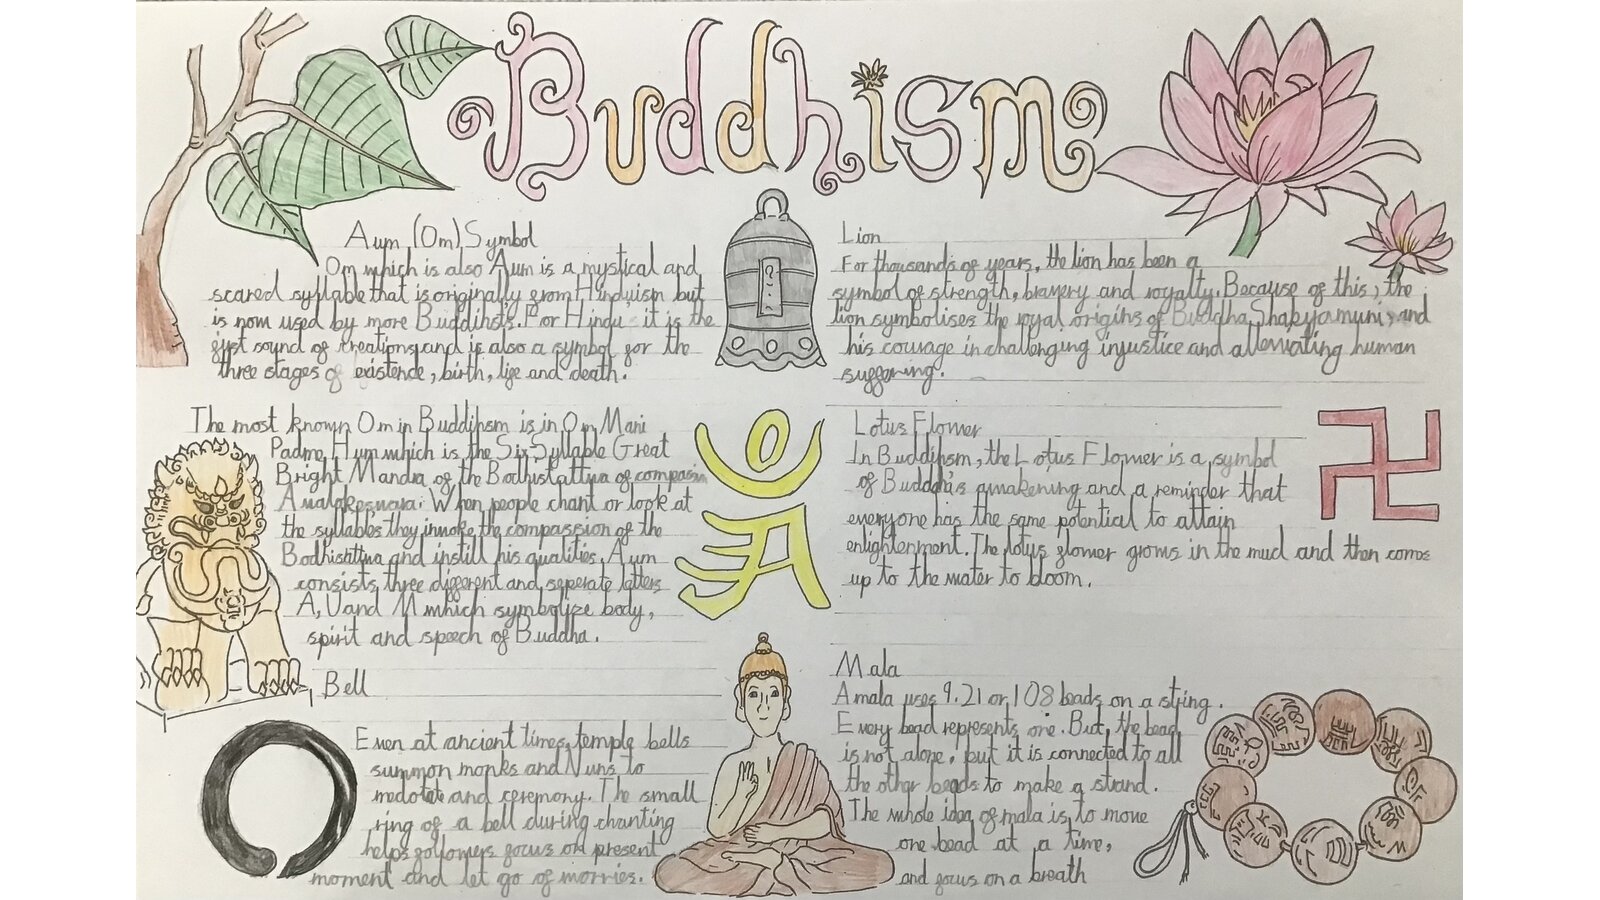 Buddhism
Aum (Om) Symbol
Om which is also Aum is a mystical and
scared syllable that is originally from Hinduism but
is now used by more Buddihsts. For Hindu it is the
fyst sound of creations and is also a symbol for the
three stages of existence, birth, life and death.
The most known Om in Buddihsm is in Om Mani
Padme Hum which is the Six Syllable Great
Bright Mandra of the Bodhistattva of
When people chant or look at
the syllables they invoke the compassion of the
and instill his qualities. Aum
consists three different and seperate letters
A, U and M which symbolize body,
spirit and speech of Buddha.
Bell
Even at ancient times, temple bells
summon monks and Nuns to
and ceremony. The small
ring of a bell during chanting
helps focus on present
moment and let go of worries.
Lion
For thousands of years, the lion has been a
symbol of strength, bravery and royalty. Because of this, the
lion symbolises the royal origins of Buddha Shakyamuni, and
his courage in challenging injustice and alleviating human
suffering.
Lotus Flower
In Buddihsm, the Lotus Flower is a symbol
of Buddha's awakening and a reminder that
everyone has the same potential to attain
enlightenment. The lotus flower grows in the mud and then comes
up to the water to bloom.
Mala
A mala uses 9.21 or 108 beads on a string.
Every bead represents one. But, the bead
is not alone, but it is connected to all
the other beads to make a strand.
The whole idea of mala is to move
one bead at a time,
and focus on a breath